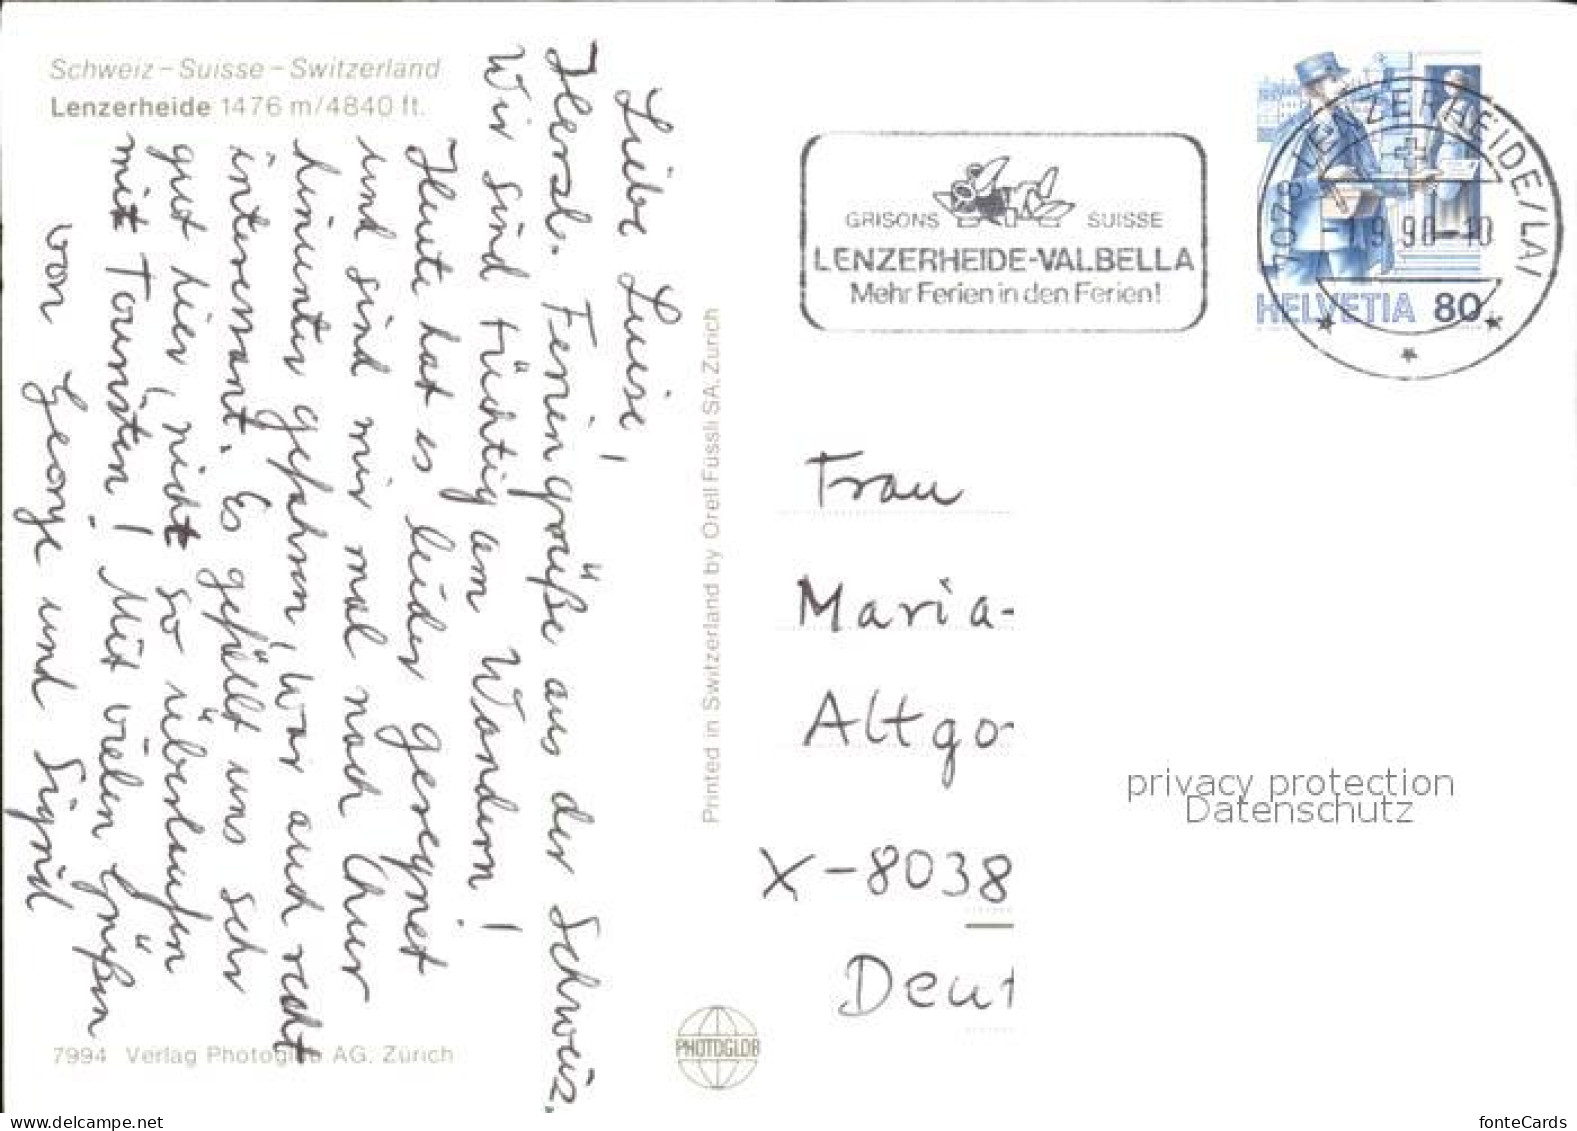 Schweiz – Suisse – Switzerland
Lenzerheide 1476 m/4840 ft.
Liebe Luise,
Herzl. Feriengrüße aus der Schweiz.
Wir sind tüchtig am Wandern!
Heute hat es leider geregnet
und sind wir mal nach Chur
hinunter gefahren, war auch recht
interessant. Es gefällt uns sehr
gut hier, nicht so überlaufen
mit Touristen! Mit vielen Grüßen
von George und Sigrid
7994 Verlag Photoglob AG, Zürich
Printed in Switzerland by Orell Füssli SA, Zürich
PHOTOGLOB
GRISONS SUISSE
LENZERHEIDE-VALBELLA
Mehr Ferien in den Ferien!
7078 LENZERHEIDE/LAI
9.90-10
HELVETIA 80
Frau
Maria-
Altgo-
X-8038
Deut
privacy protection
Datenschutz
www.delcampe.net
fonteCards